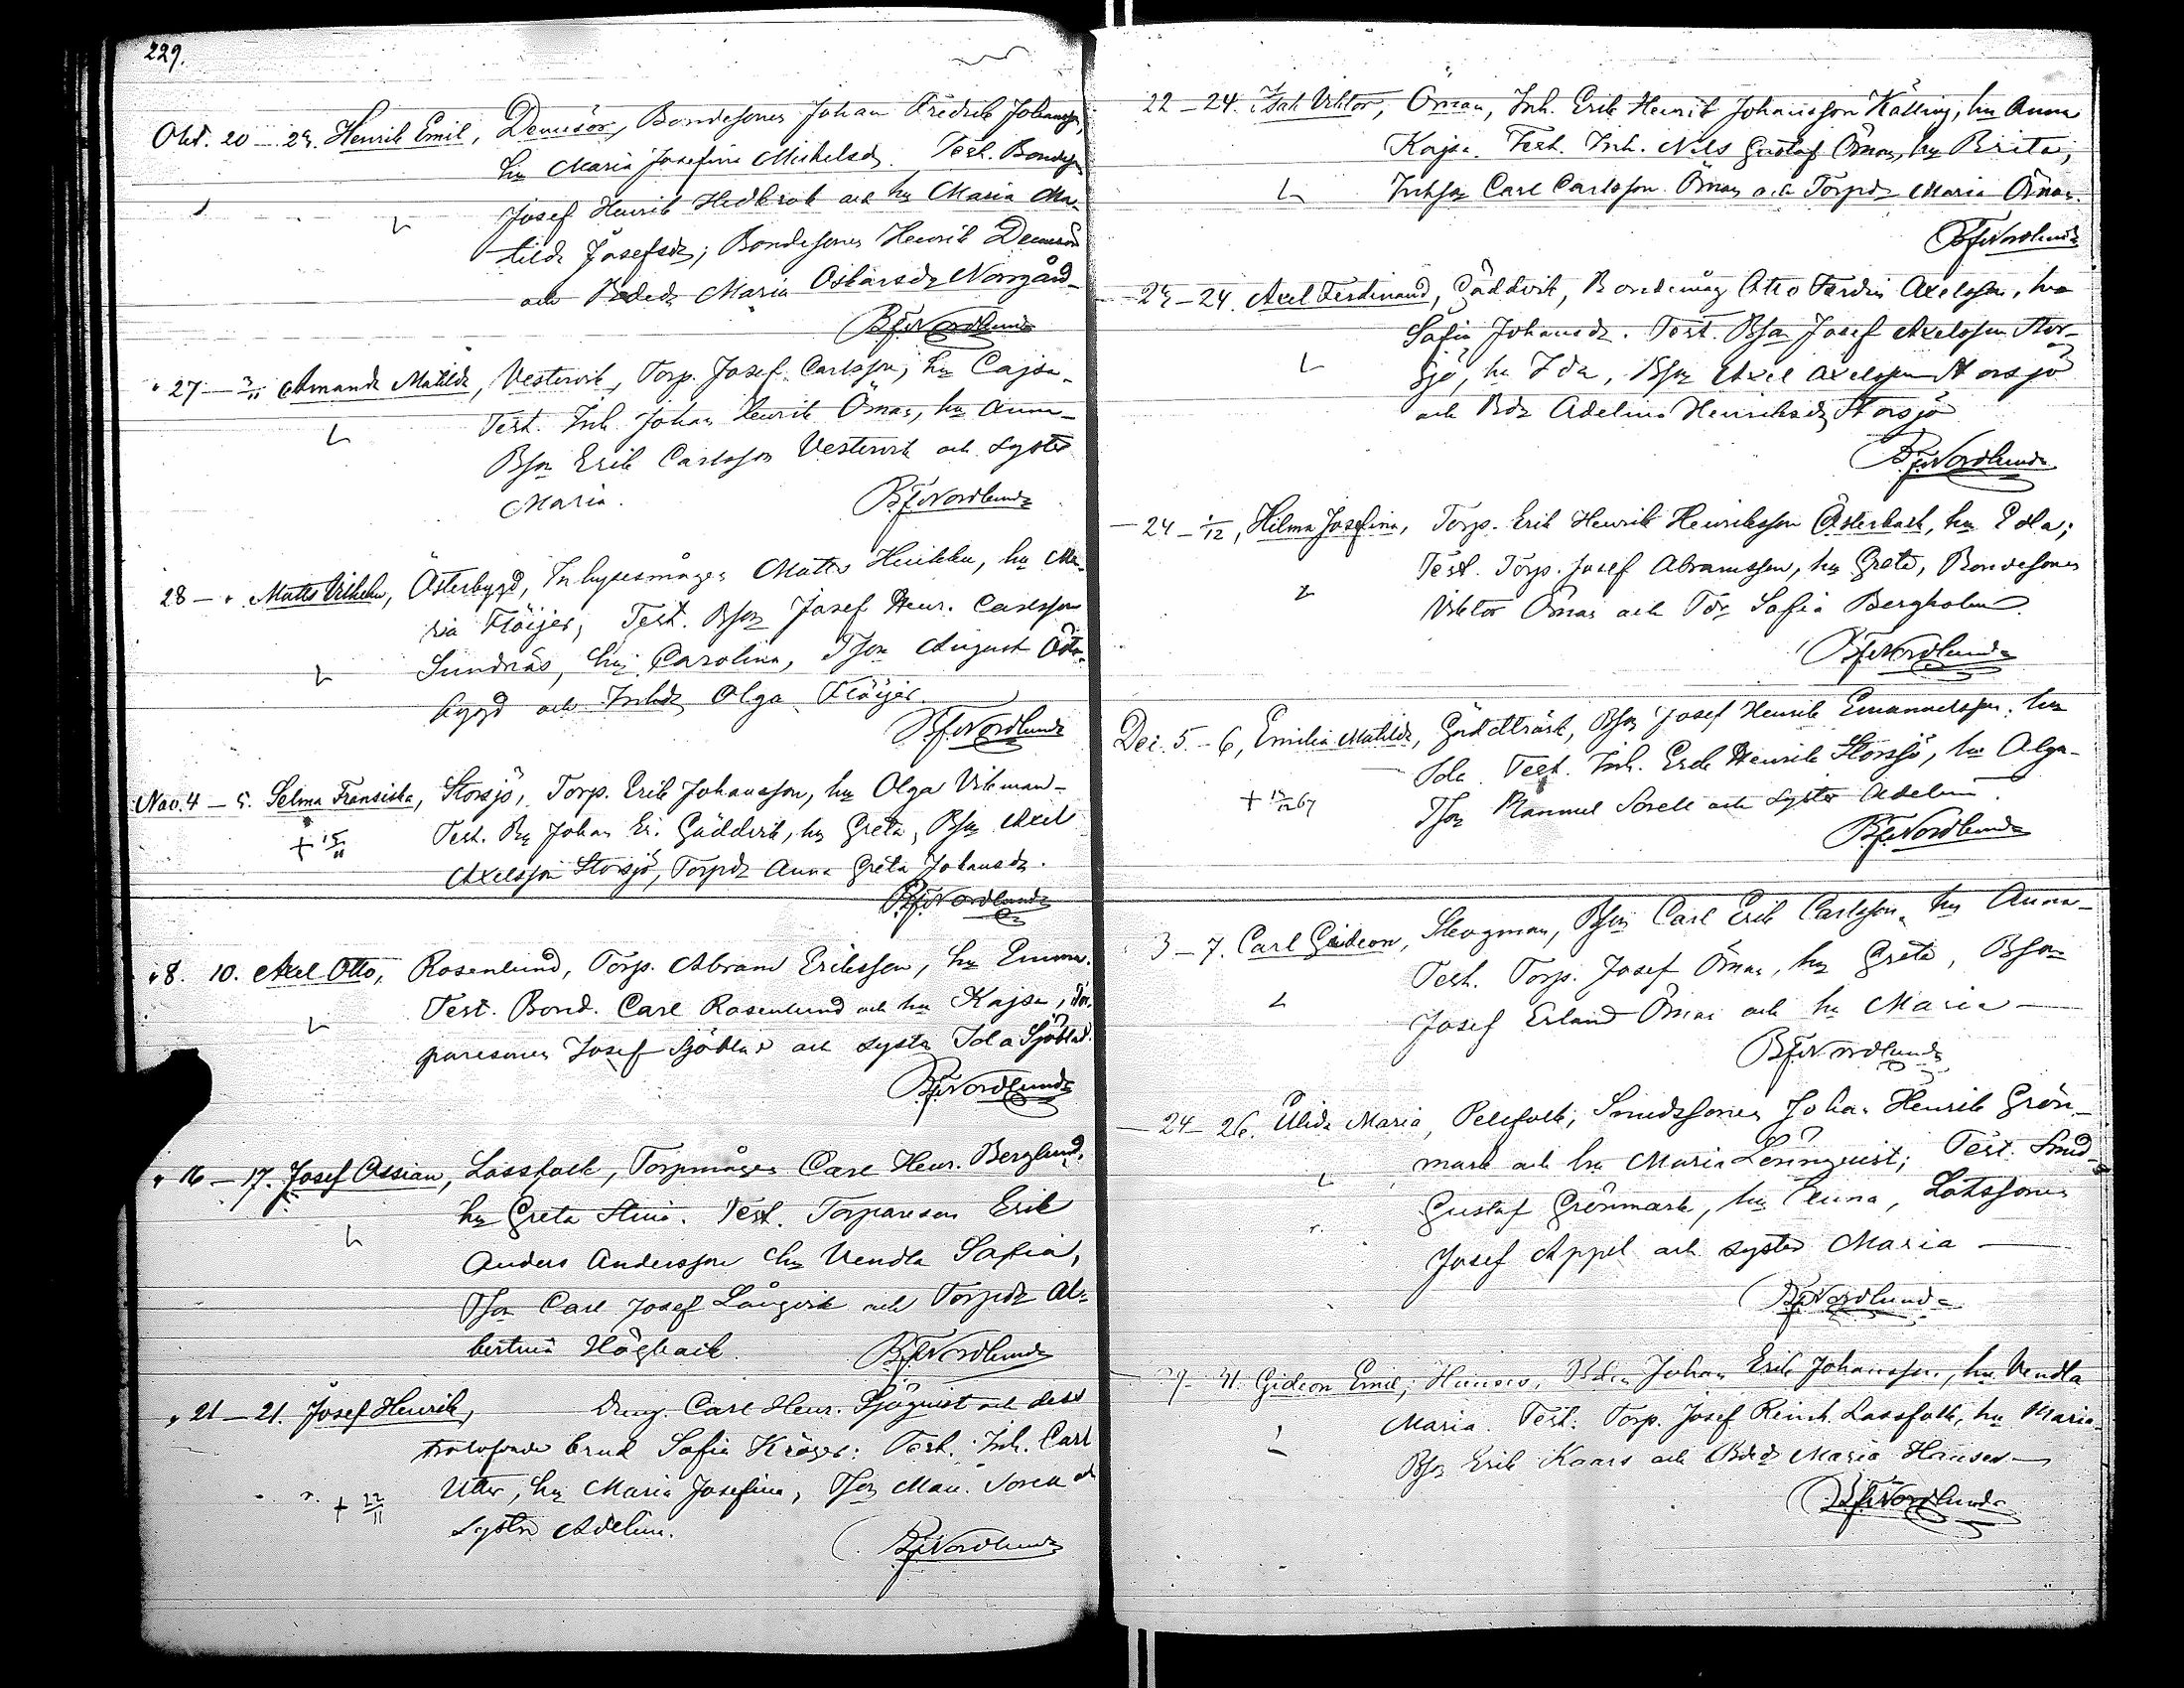 229.
Okt. 20 – 25. Henrik Emil, Demisör, Bondesonen Johan Fredrik Johansson,
hu Maria Josefina Mickelsdr. Test. Bondeson
Josef Henrik Hedkrok och hu Maria Ma-
tilda Josefsdr; Bondesonen Henrik Demisör
och Bdedr Maria Oskarsdr Norrgård
B.f. Nordlund
" 27 – 3/11 Amanda Matilda, Vestervik, Torp. Josef Carlsson, hu Cajsa.
Test. Inh. Johan Henrik Öman, hu Anna
Bson Erik Carlsson Vestervik och syster
Maria.
B.f. Nordlund
28 – " Matts Vilhelm, Österbygd, Inhysesmågen Matts Heikku, hu Ma-
ria Flöijer, Test. Bson Josef Henr. Carlsson
Sundnäs, hu Carolina, Tson August Öster-
bygd och Inhdr Olga Flöijer.
B.f. Nordlund
Nov. 4 – 5. Selma Fransiska, Storsjö, Torp. Erik Johansson, hu Olga Vikman
Test. Johan Er. Gäddvik, hu Greta, Bson Axel
+ 15/11
Axelsson Storsjö, Torpdr Anna Greta Johansdr.
B.f. Nordlund
" 8. 10. Axel Otto, Rosenlund, Torp. Abram Eriksson, hu Emma.
Test. Bond. Carl Rosenlund och hu Kajsa, Tor-
paresonen Josef Sjöblad och syster Ida Sjöblad.
B.f. Nordlund
" 16 – 17. Josef Ossian, Lassfolk, Torpmågen Carl Henr. Berglund,
hu Greta Stina. Test. Torpareson Erik
Anders Andersson hu Vendla Sofia,
Tson Carl Josef Långvik och Torpdr Al-
bertina Högback.
B.f. Nordlund
" 21 – 21. Josef Henrik, Dräng. Carl Henr. Sjöqvist och dess
trolofvade brud Sofia Test. Inh. Carl
Utter, hu Maria Josefina, Tson Man. Sorell och
+ 22/11
syster Adelina.
B.f. Nordlund
22 – 24. Isak Viktor, Öman, Inh. Erik Henrik Johansson Källing, hu Anna
Kajsa. Test. Inh. Nils Gustaf Öman, hu Brita,
Inhson Carl Carlsson Öman och Torpdr Maria Öman.
B.f. Nordlund
– 23 – 24. Axel Ferdinand, Gäddvik, Bondemåg Otto Ferdin. Axelsson, hu
Sofia Johansdr. Test. Bson Josef Axelsson Stor-
sjö, hu Ida, Bson Axel Axelsson Storsjö
och Bdr Adelina Henriksdr Storsjö
B.f. Nordlund
– 24 – 1/12, Hilma Josefina, Torp. Erik Henrik Henriksson Österback, hu Edla;
Test. Torp. Josef Abramsson, hu Greta, Bondesonen
Viktor Öman och Tdr Sofia Bergholm.
B.f. Nordlund
Dec. 5 – 6, Emilia Matilda, Gäddträsk, Bson Josef Henrik Emanuelsson, hu
Ida. Test. Inh. Erik Henrik Storsjö, hu Olga
Tson Manuel Sorell och syster Adelina.
B.f. Nordlund
3 – 7. Carl Gideon, Skogman, Bson Carl Erik Carlsson, hu Anna
Test. Torp. Josef Öman, hu Greta, Bson
Josef Erland Öman och hu Maria
B.f. Nordlund
– 24 – 26. Alida Maria, Pelefolk, Smedssonen Johan Henrik Grön-
mark och hu Maria Lönnqvist; Test. Smed
Gustaf Grönmark, hu Anna, Lotssonen
Josef Appel och syster Maria
B.f. Nordlund
31. Gideon Emil, Johan Erik Johansson, hu Vendla
Maria. Test. Torp. Josef Reinh. Lassfolk, hu Maria
Bson Erik Kaars och Bdedr Maria
B.f. Nordlund